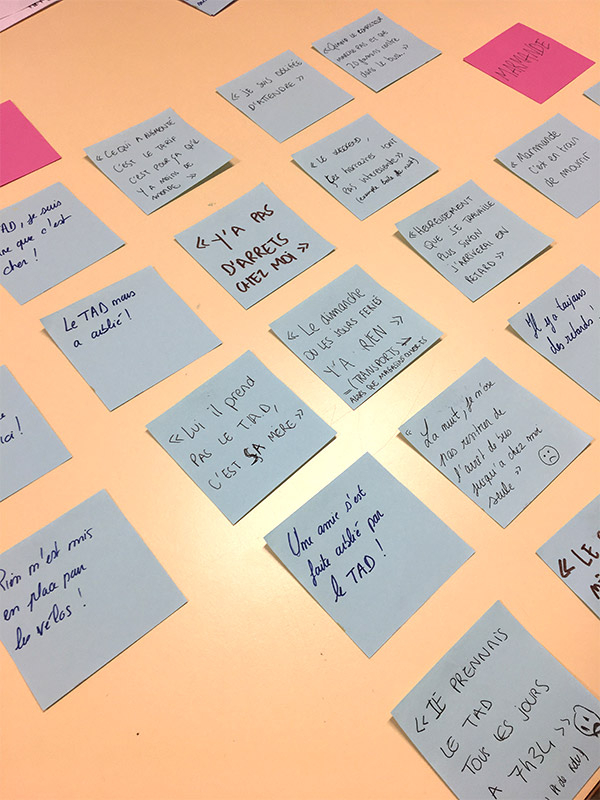 MARMANDE
« QUAND LE
MARCHE PAS ET QUE
DANS LE BUS... »
« JE SUIS
D'ATTENDRE »
« CE QUI A AUGMENTÉ
C'EST LE TARIF
C'EST POUR ÇA QUE
Y'A MOINS DE
MONDE »
« LE VENDREDI,
LES HORAIRES SONT
PAS INTERESSANTS »
« Marmande
c'est en train
de mourir
TAD, je suis
que c'est
cher !
« Y'A PAS
D'ARRETS
CHEZ MOI »
« HEUREUSEMENT
QUE JE TRAVAILLE
PLUS SINON
J'ARRIVERAI EN
RETARD »
Le TAD nous
a oublié !
« Le dimanche
OU LES JOURS FERIÉS
Y'A RIEN »
(TRANSPORTS)
ALORS QUE MAGASINS OUVERTS
Il y a toujours
des retards !
« Lui il prend
PAS LE TAD,
C'EST SA MERE »
« La nuit, je n'ose
pas rentrer de
l'arrêt de bus
jusqu'à chez moi
seule »
Rien m'est mis
en place pour
les vélos !
Une amie s'est
faite oublié par
le TAD !
« LE
« JE PRENNAIS
LE TAD
TOUS LES JOURS
A 7h34 »